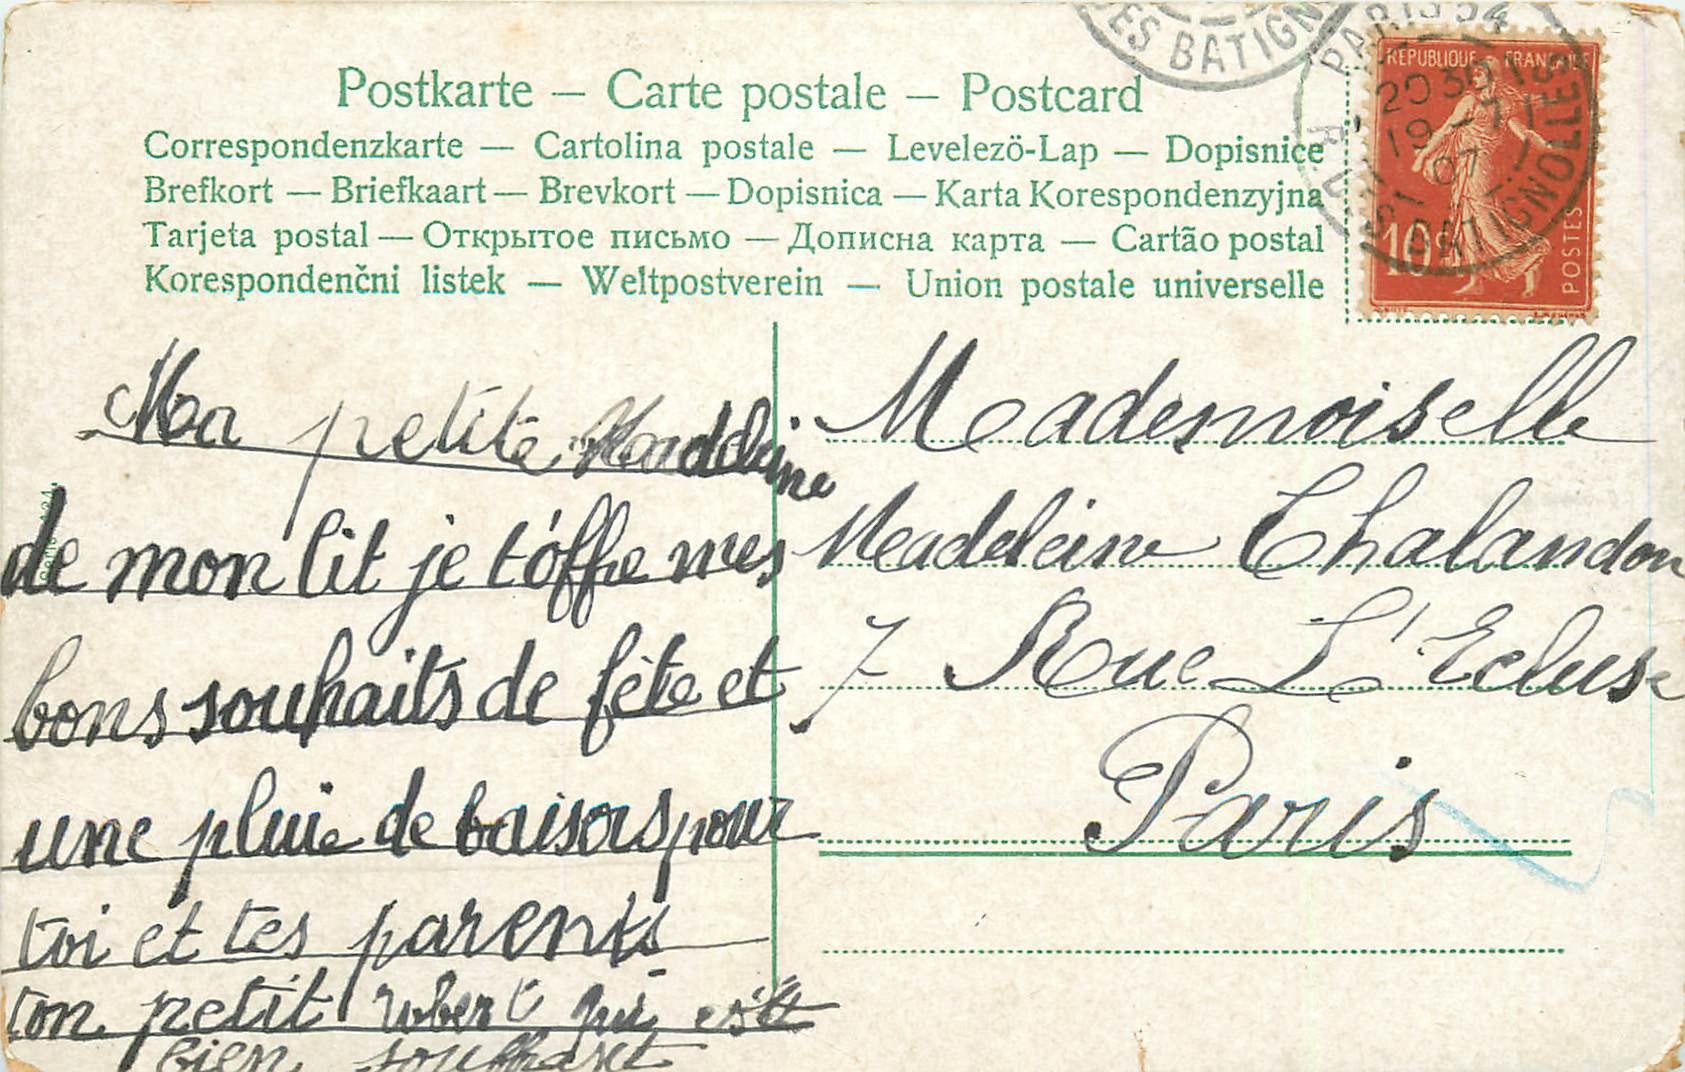 Postkarte — Carte postale — Postcard
Correspondenzkarte — Cartolina postale — Levelezö-Lap — Dopisnice
Brefkort — Briefkaart — Brevkort — Dopisnica — Karta Korespondenzyjna
Tarjeta postal — Открытое письмо — Дописна карта — Cartão postal
Korespondenčni listek — Weltpostverein — Union postale universelle
ES BATIGN
PARIS 54
20 30
19 - 7
07
R. D
BATIGNOLLES
REPUBLIQUE FRANÇAISE
10c
POSTES
Ma petite Maddeleine
de mon lit je t'óffre mes
bons souhaits de fête et
une pluie de baisers pour
toi et tes parents
ton petit robert qui est
bien souffrant
Mademoiselle
Madeleine Chalandon
7 Rue L'Ecluse
Paris